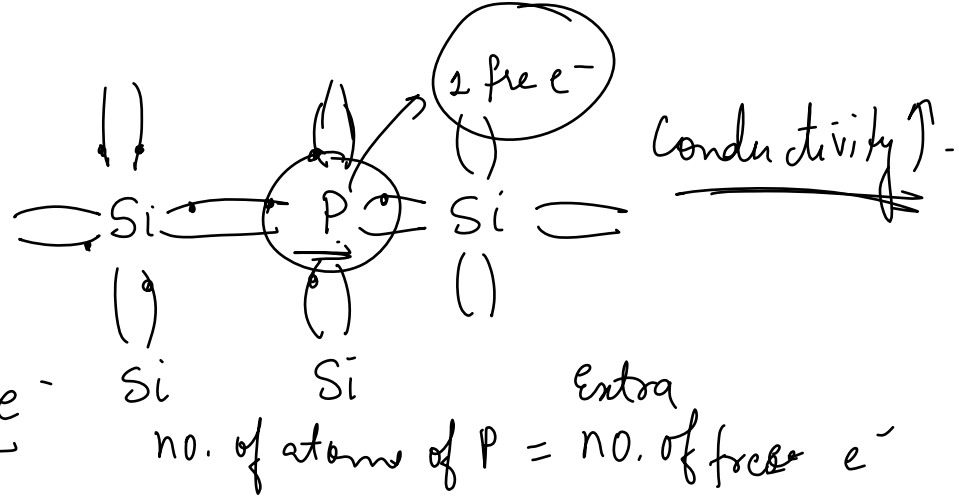 1 free e⁻
Conductivity ↑
Si P Si
Si Si
e⁻
Extra
no. of atoms of P = no. of free e⁻